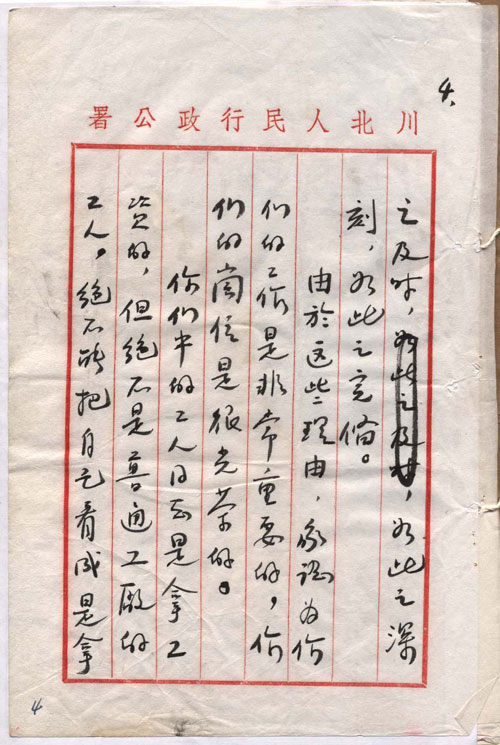 4.
川北人民行政公署
之及时，如此之及时，如此之深
刻，如此之完俻。
由於这些理由，我認为你
们的工作是非常重要的，你
们的崗位是很光荣的。
你们中的工人同志是拿工
资的，但绝不是普通工厰的
工人，绝不能把自己看成是拿
4